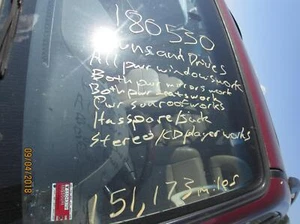 180530
Runs and Drives
All pwr windows work
Both pwr mirrors work
Both pwr seats work
Pwr sunroof works
Has spare/Jack
Stereo/CD player works
151,173 miles
09/04/2018